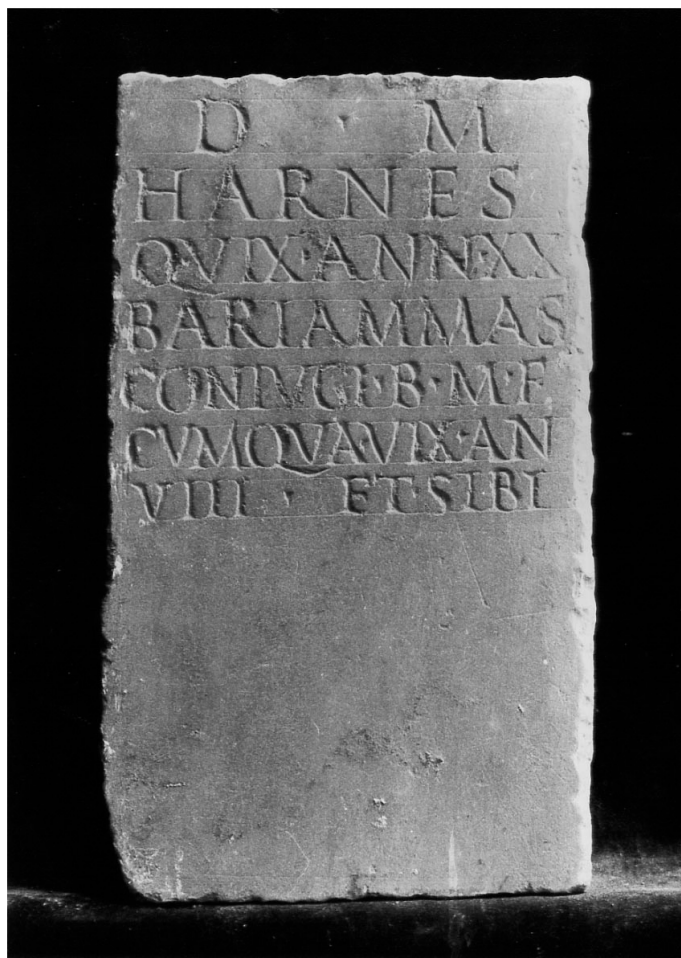 D · M
HARNES
Q·VIX·ANN·XX
BARIAMMAS
CONIVGI·B·M·F
CVMQVA·VIX·AN
VIII · ET·SIBI